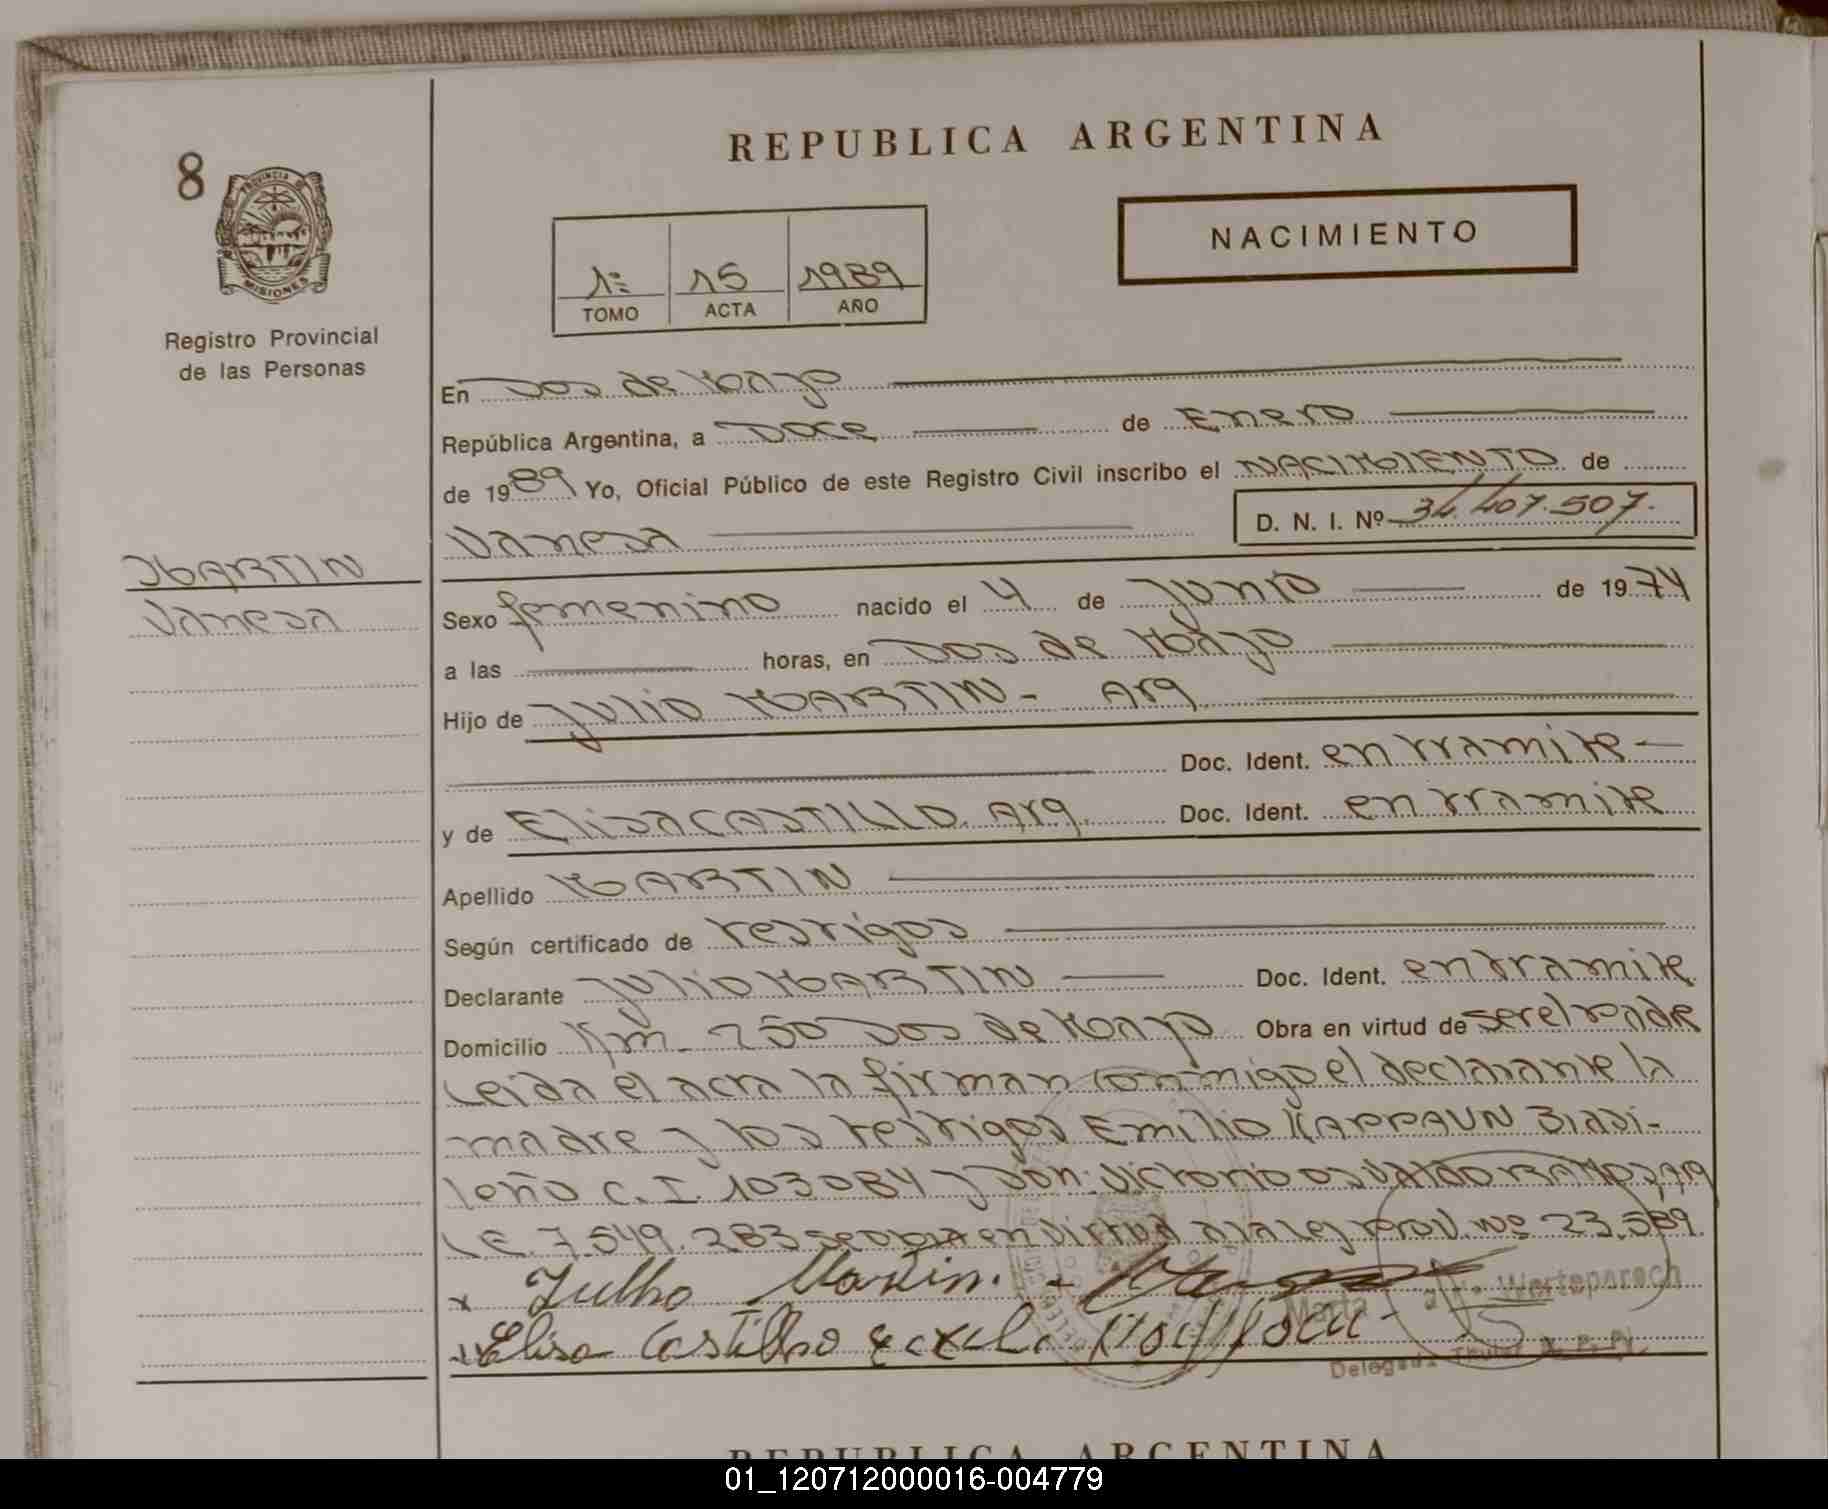 REPUBLICA ARGENTINA
8
PROVINCIA DE
MISIONES
NACIMIENTO
1º 15 1989
TOMO ACTA AÑO
Registro Provincial
de las Personas
En Dos de Mayo
República Argentina, a Doce de Enero
de 1989 Yo, Oficial Público de este Registro Civil inscribo el NACIMIENTO de
Vanesa D. N. I. Nº 34.407.507.
MARTIN
Vanesa
Sexo femenino nacido el 4 de Junio de 1974
a las horas, en Dos de Mayo
Hijo de Julio MARTIN - Arg
Doc. Ident. en tramite
y de Elisa CASTILLO. Arg. Doc. Ident. en tramite
Apellido MARTIN
Según certificado de testigos
Declarante Julio MARTIN Doc. Ident. en tramite
Domicilio Km. 250 Dos de Mayo Obra en virtud de ser el padre
Leida el acta la firman conmigo el declarante la
madre y los testigos Emilio KAPPAUN Brasi-
leño C.I. 103084 y Don: Victorio Osvaldo RAMOS Arg
L.E. 7.549.283 se obra en virtud a la ley prov. Nº 23.589.
Julho Martin.
Elisa Castilho
Maria
Delegada Titular R. P. P.
REPUBLICA ARGENTINA
01_120712000016-004779